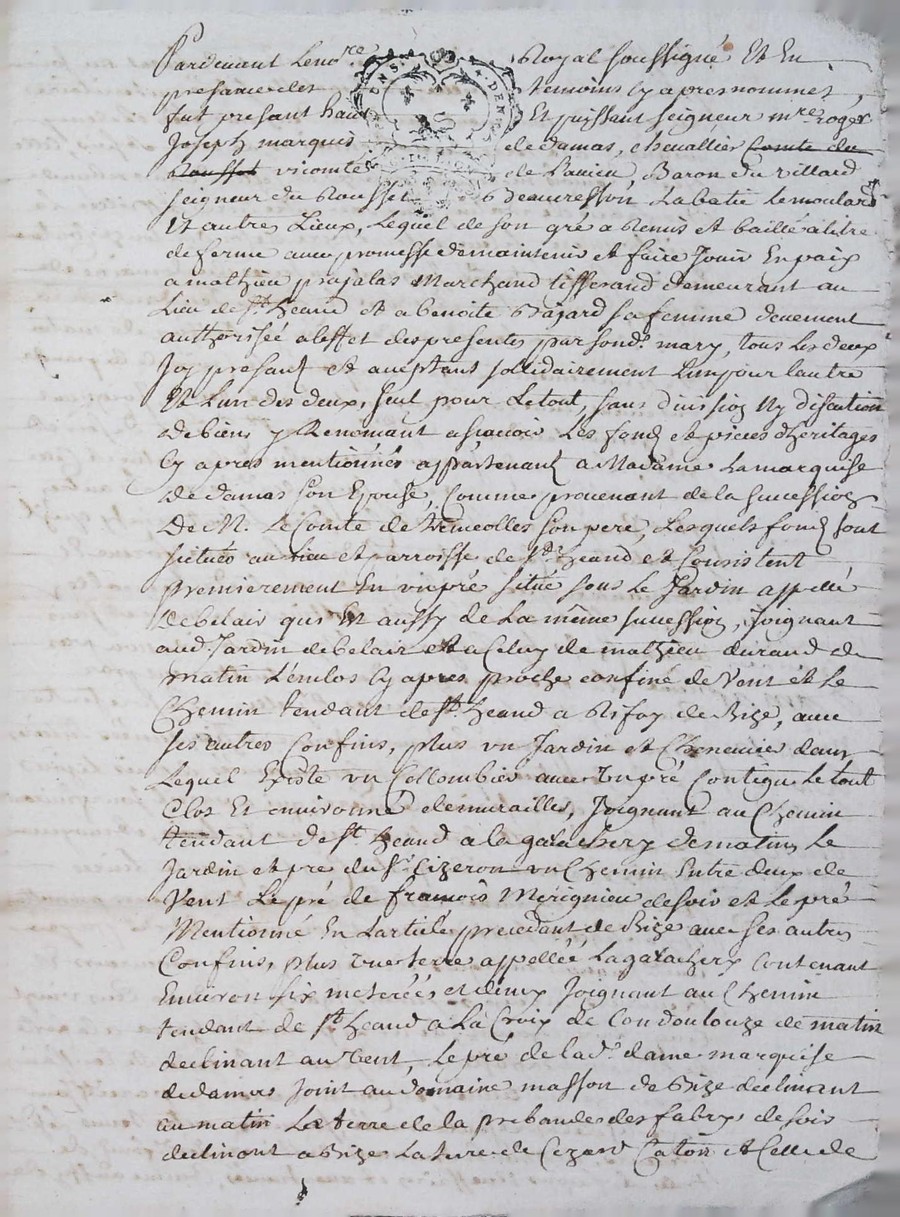 Pardevant Leno.re Royal soussigné Et En
presance des temoins Cy apres nommes,
fut presant haut Et puissant seigneur m.re roger
Joseph marquis de damas, chevallier Comte du
Rousset vicomte de , Baron du villard
seigneur du Rousset La batie Lemoulard
Et autres Lieux, Lequel de son gré a Remis et baillé a titre
de ferme avec promesse de maintenir et faire Jouir En paix
a mathieu prajalas Marchand tisserand demeurant au
Lieu de S.t heand et a benoite Bajard sa femme deuement
authorisée a leffet des presentes par sond. mary, tous Les deux
Icy presant et aceptant sollidairement L'un pour lautre
Et L'un des deux, seul pour Le tout, sans division Ny discution
de biens y Renonçant asçavoir Les fond et pieces d'heritages
Cy apres mentionnés appartenant a Madame La marquise
de damas son Epouse, Comme provenant de la sucession
De M. Le Comte de son pere, Lesquels fond sont
situés au Lieu et parroisse de S.t heand et Consistent
premierement En un pré situé sous Le Jardin appellé
De belair qui Est aussy de La même sucession, joignant
aud. Jardin de belair et a Celuy de mathieu durand de
matin L'enclos Cy apres proche confiné de Vent et Le
Chemin tendant de S.t heand a Rifoy de Bize, avec
ses autres Confins, plus un Jardin et Chenevier dans
Lequel Existe un Collombier avec Un pré Contigu Le tout
Clos Et environné de murailles, Joignant au Chemin
tendant de S.t heand a la gatachery de matin, Le
Jardin et pré du S.r Cizeron un Chemin Entre deux de
Vent Le pré de françois Merignieu de soir et Le pré
Mentionné En L'article precedant de Bize avec ses autres
Confins, plus une terre appellée La gatachery Contenant
Environ six meterées et demy Joignant au Chemin
tendant de S.t heand a La Croix de Condoulouze de matin
declinant au Vent, Le pré de lad. dame marquise
de damas Joint au domaine masson de Bize declinant
au matin La terre de la prebande des fabry de soir
declinant a Bize La terre de Cezard Caton et Celle de